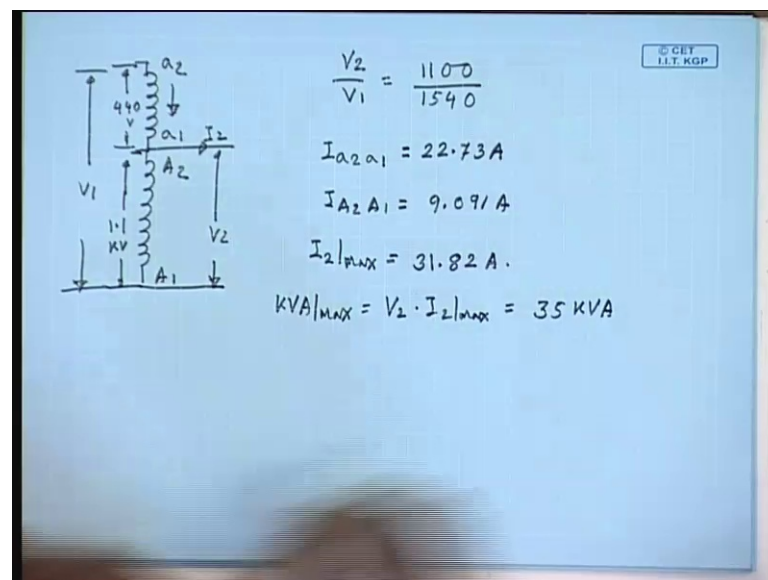 © CET
I.I.T. KGP
a2
440
V
a1 I2
A2
V1
1.1
KV
V2
A1
V2/V1 = 1100/1540
Ia2a1 = 22.73A
IA2A1 = 9.091A
I2|max = 31.82 A.
KVA|max = V2 · I2|max = 35 KVA